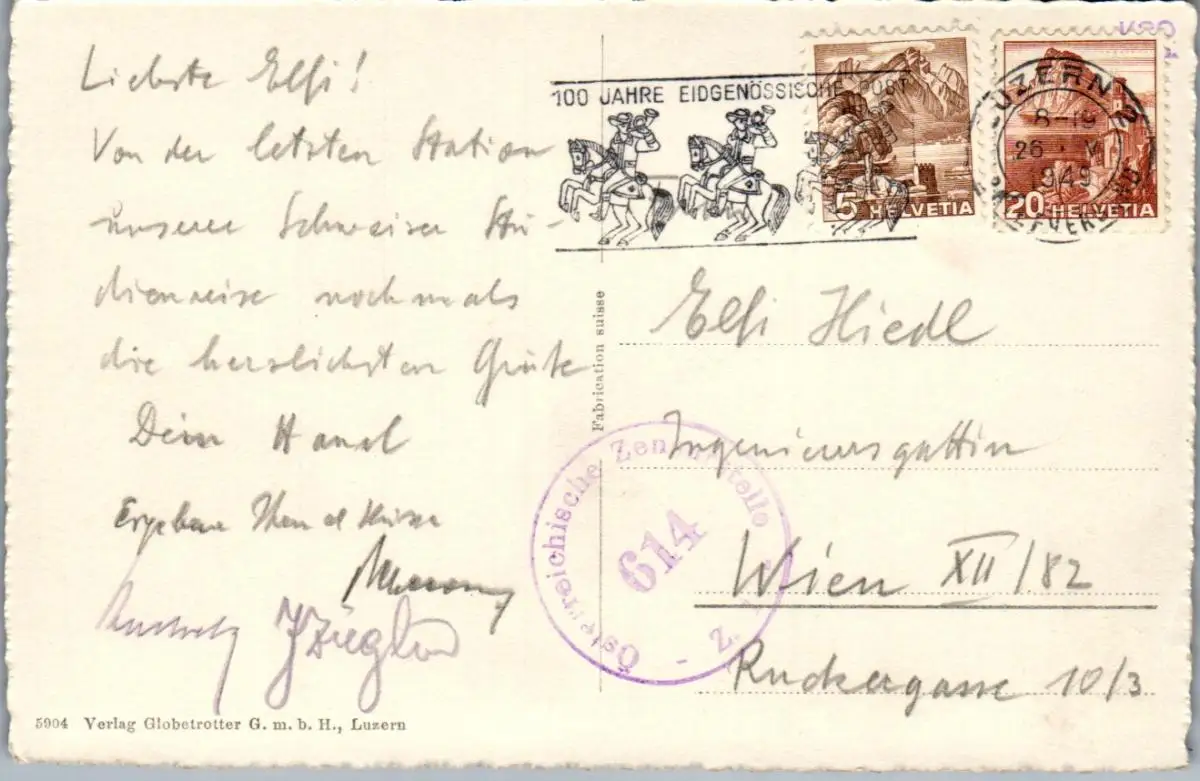 Liebste Elfi!
Von der letzten Station
unserer Schweizer Stu-
dienreise nochmals
die herzlichsten Grüße
Dein Hansl
Ergebene Handküsse
J Ziegler
5904 Verlag Globetrotter G. m. b. H., Luzern
Fabrication suisse
100 JAHRE EIDGENÖSSISCHE POST
5 HELVETIA
20 HELVETIA
LUZERN 2
8-19
26. V
1949
BRIEFVERSAND
Elfi Hiedl
Ingenieursgattin
Wien XII/82
Ruckergasse 10/3
Österreichische Zensurstelle
614
Z.